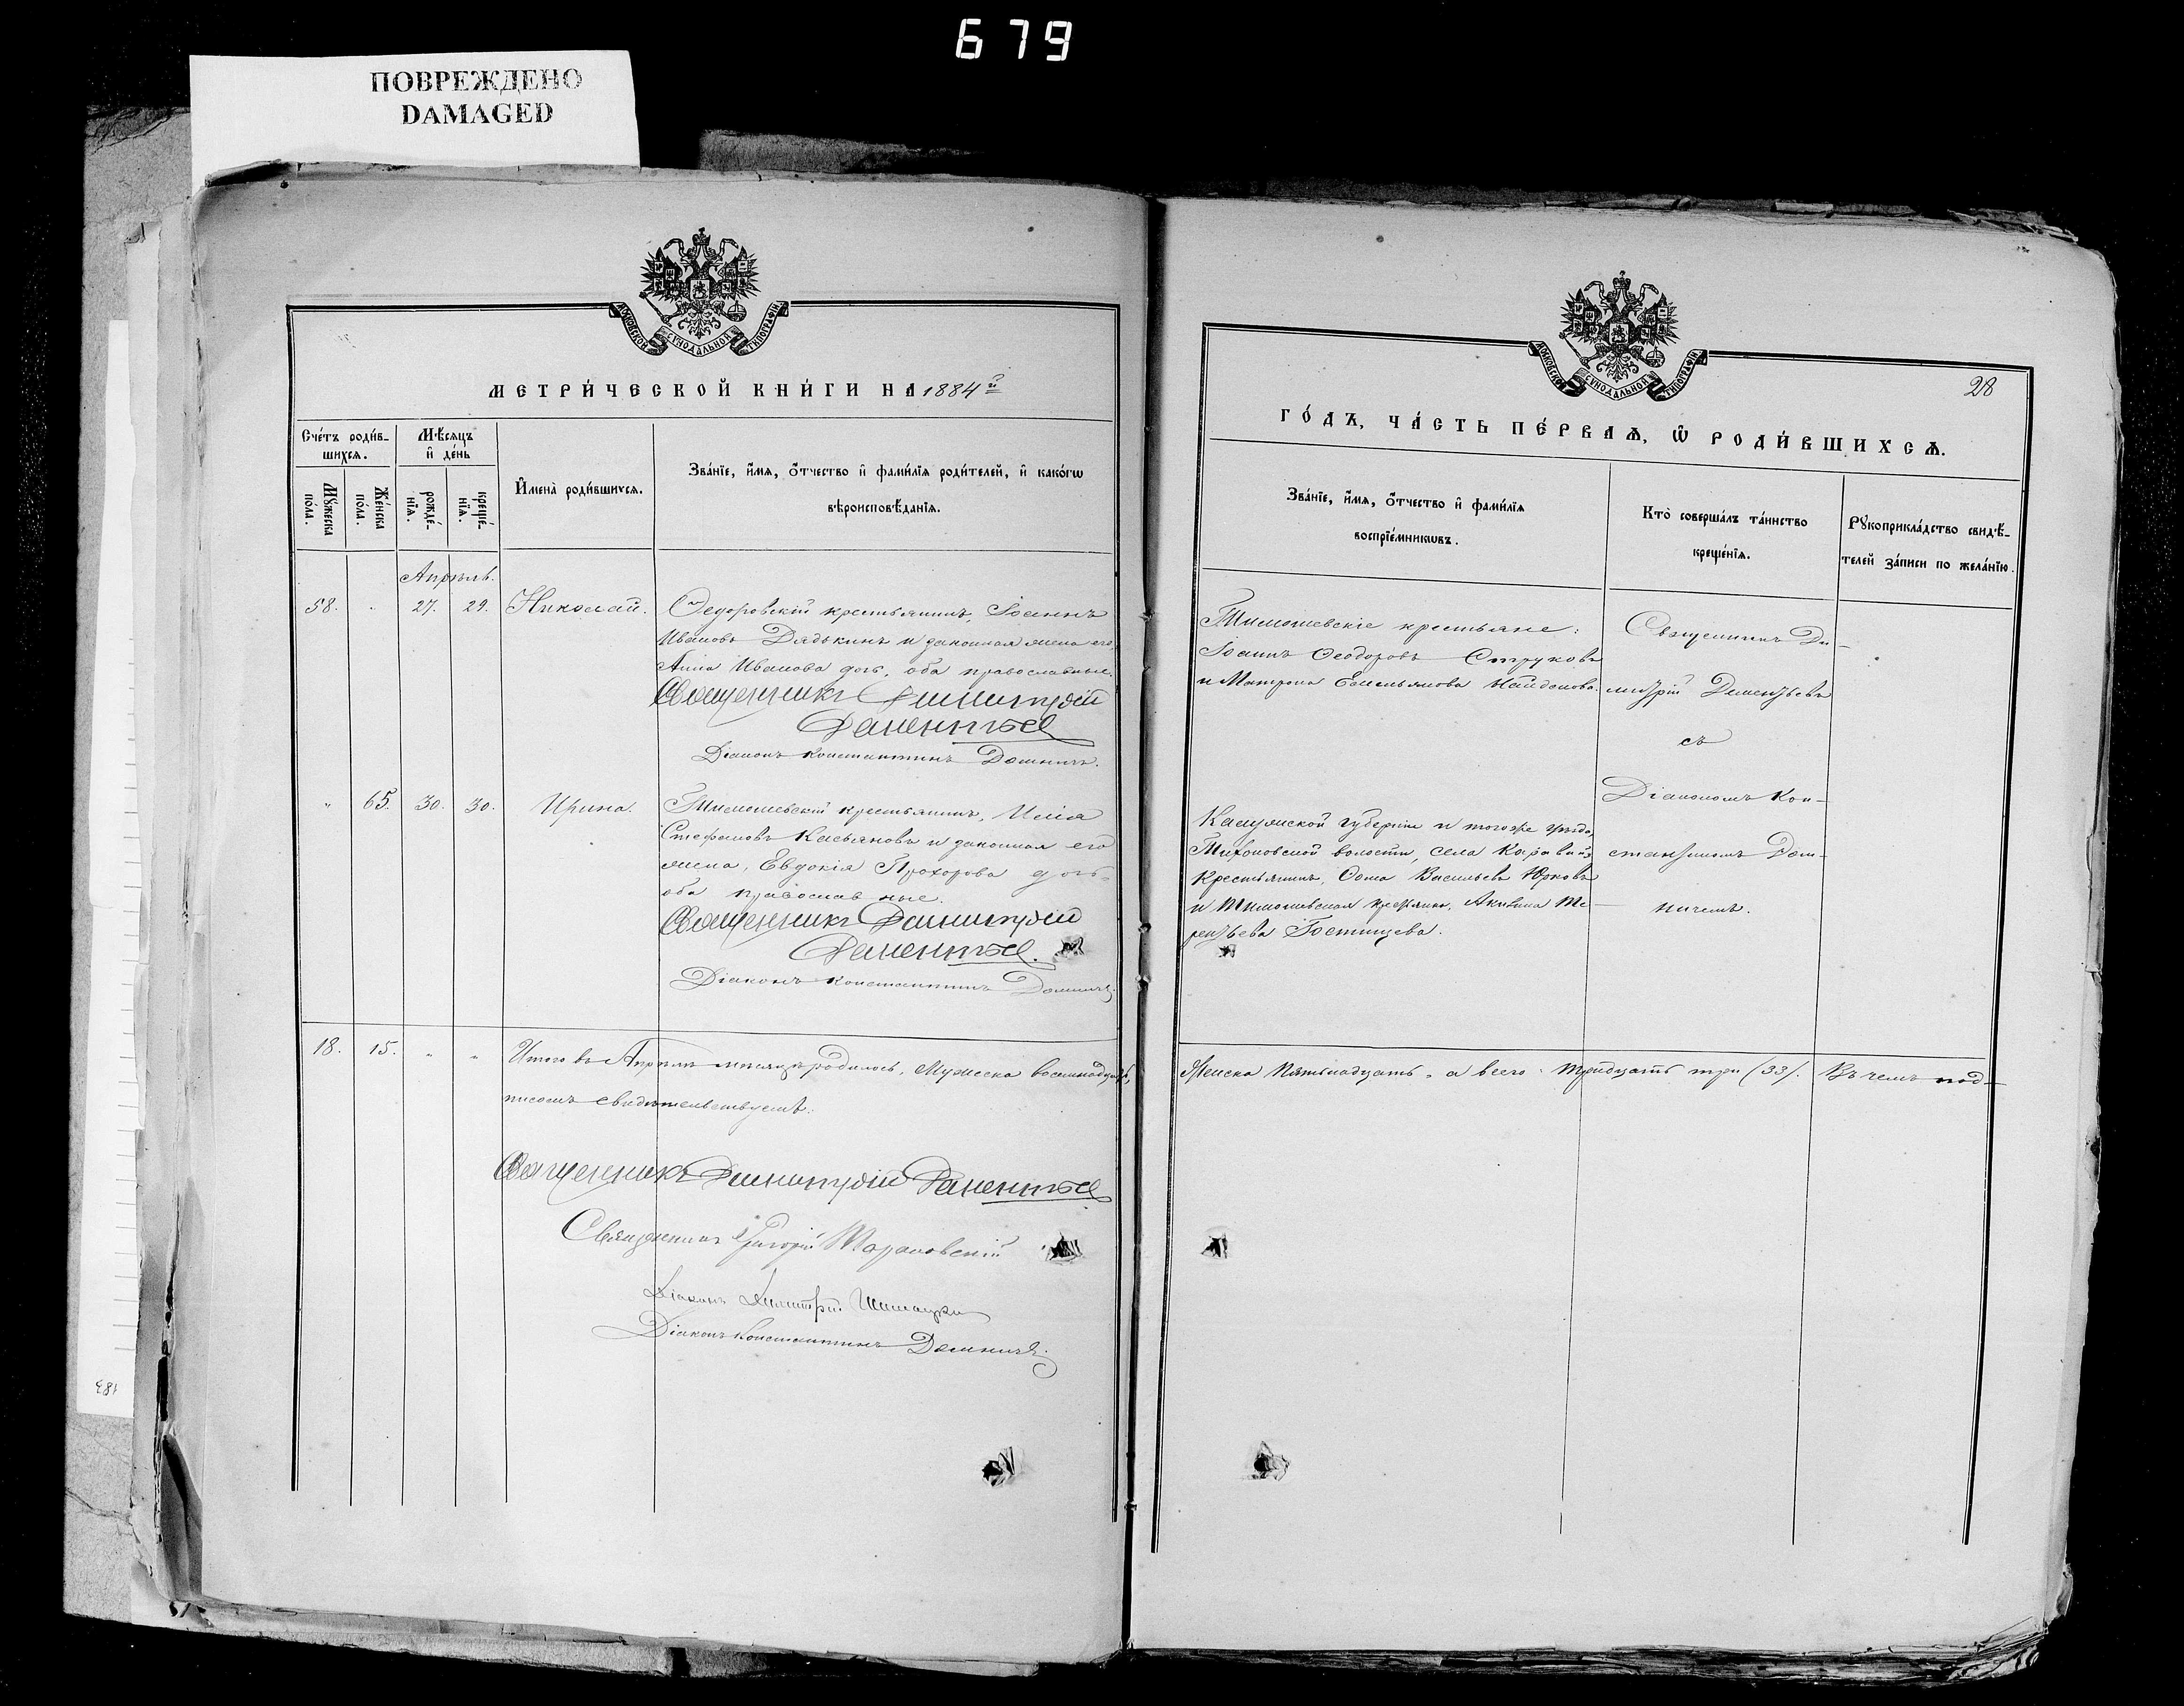 679
ПОВРЕЖДЕНО
DAMAGED
МОСКОВСКОЙ СѴНОДАЛЬНОЙ ТИПОГРАФІИ
МЕТРИ́ЧЕСКОЙ КНИ́ГИ НА 1884й
Сче́тъ роди́в-
шихсѧ.
Мѣ́сѧцъ
и҆ де́нь
Мꙋ́жеска
по́ла.
Же́нска
по́ла.
рожде́-
нїѧ.
креще́-
нїѧ.
И҆мена̀ роди́вшихсѧ.
Зва́нїе, и҆́мѧ, ѻ҆́тчество и҆ фами́лїѧ роди́телей, и҆ како́гѡ
вѣроисповѣ́данїѧ.
Апрѣль.
58. " 27. 29. Николай.
Ѳедоровскій крестьянинъ, Іоаннъ
Ивановъ Дядькинъ и законная жена его,
Анна Иванова дочь, оба православные.
Священникъ Димитрій
Дементьев
Діаконъ Константинъ Домничъ.
" 65. 30. 30. Ирина.
Тимошевскій крестьянинъ, Илія
Стефановъ Касьяновъ и законная его
жена, Евдокія Прохорова дочь
оба православные.
Священникъ Димитрій
Дементьев.
Діаконъ Константинъ Домничъ.
18. 15. " "
Итого въ Апрѣлѣ мѣсяцѣ родилось, Мужеска восемнадцать,
писомъ свидѣтельствуемъ:
Священникъ Димитрій Дементьев
Священникъ Григорій
Діаконъ Димитрій
Діаконъ Константинъ Домничъ.
183
МОСКОВСКОЙ СѴНОДАЛЬНОЙ ТИПОГРАФІИ
28
ГО́ДЪ, ЧА́СТЬ ПЕ́РВАѦ, Ѡ҆ РОДИ́ВШИХСѦ.
Зва́нїе, и҆́мѧ, ѻ҆́тчество и҆ фами́лїѧ
воспрїе́мникѡвъ.
Кто̀ соверша́лъ та́инство
креще́нїѧ.
Рꙋкоприкла́дство свидѣ́-
телей за́писи по жела́нїю.
Тимошевскіе крестьяне:
Іоаннъ Ѳеодоровъ Струковъ
и Матрона Емельянова Найденова.
Священникъ Ди-
митрій Дементьевъ
съ
Діакономъ Кон-
стантиномъ Дом-
ничемъ.
Калужской губерніи и тогоже уѣзда,
Тихоновской волости, села
Крестьянинъ, Ѳома Васильевъ Юрковъ
и Тимошевская крестьянка, Акилина Те-
рентьева Гостищева.
Женска Пятьнадцать, а всего тридцать три (33). Въ чемъ под-